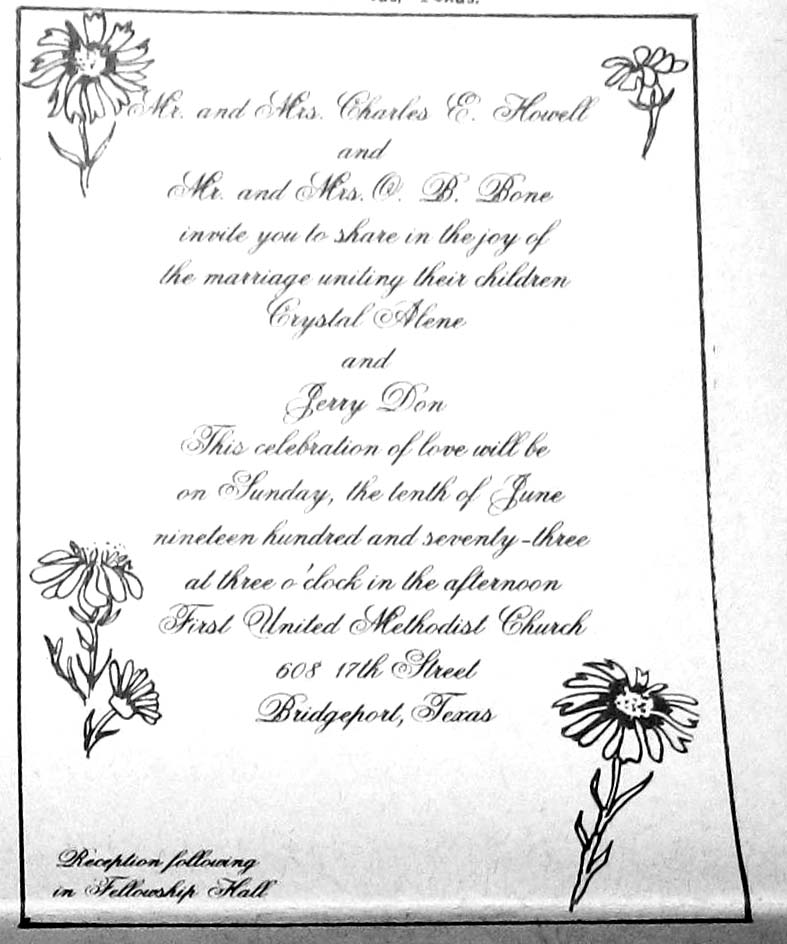 Texas.
Mr. and Mrs. Charles E. Howell
and
Mr. and Mrs. O. B. Bone
invite you to share in the joy of
the marriage uniting their children
Crystal Alene
and
Jerry Don
This celebration of love will be
on Sunday, the tenth of June
nineteen hundred and seventy-three
at three o'clock in the afternoon
First United Methodist Church
608 17th Street
Bridgeport, Texas
Reception following
in Fellowship Hall